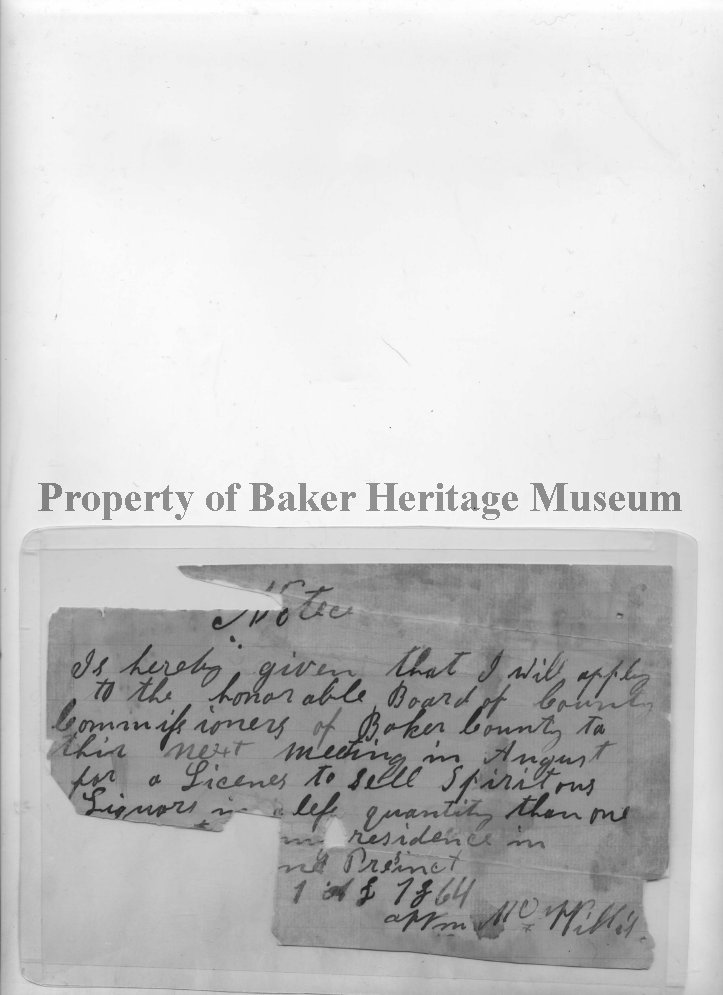 Property of Baker Heritage Museum
Notece
Is hereby given that I will apply
to the honorable Board of County
Commissioners of Baker County ta
this next meeting in August
for a Licenes to sell Spiritous
Liquors in a less quantity than one
residence in
Presinct
1864